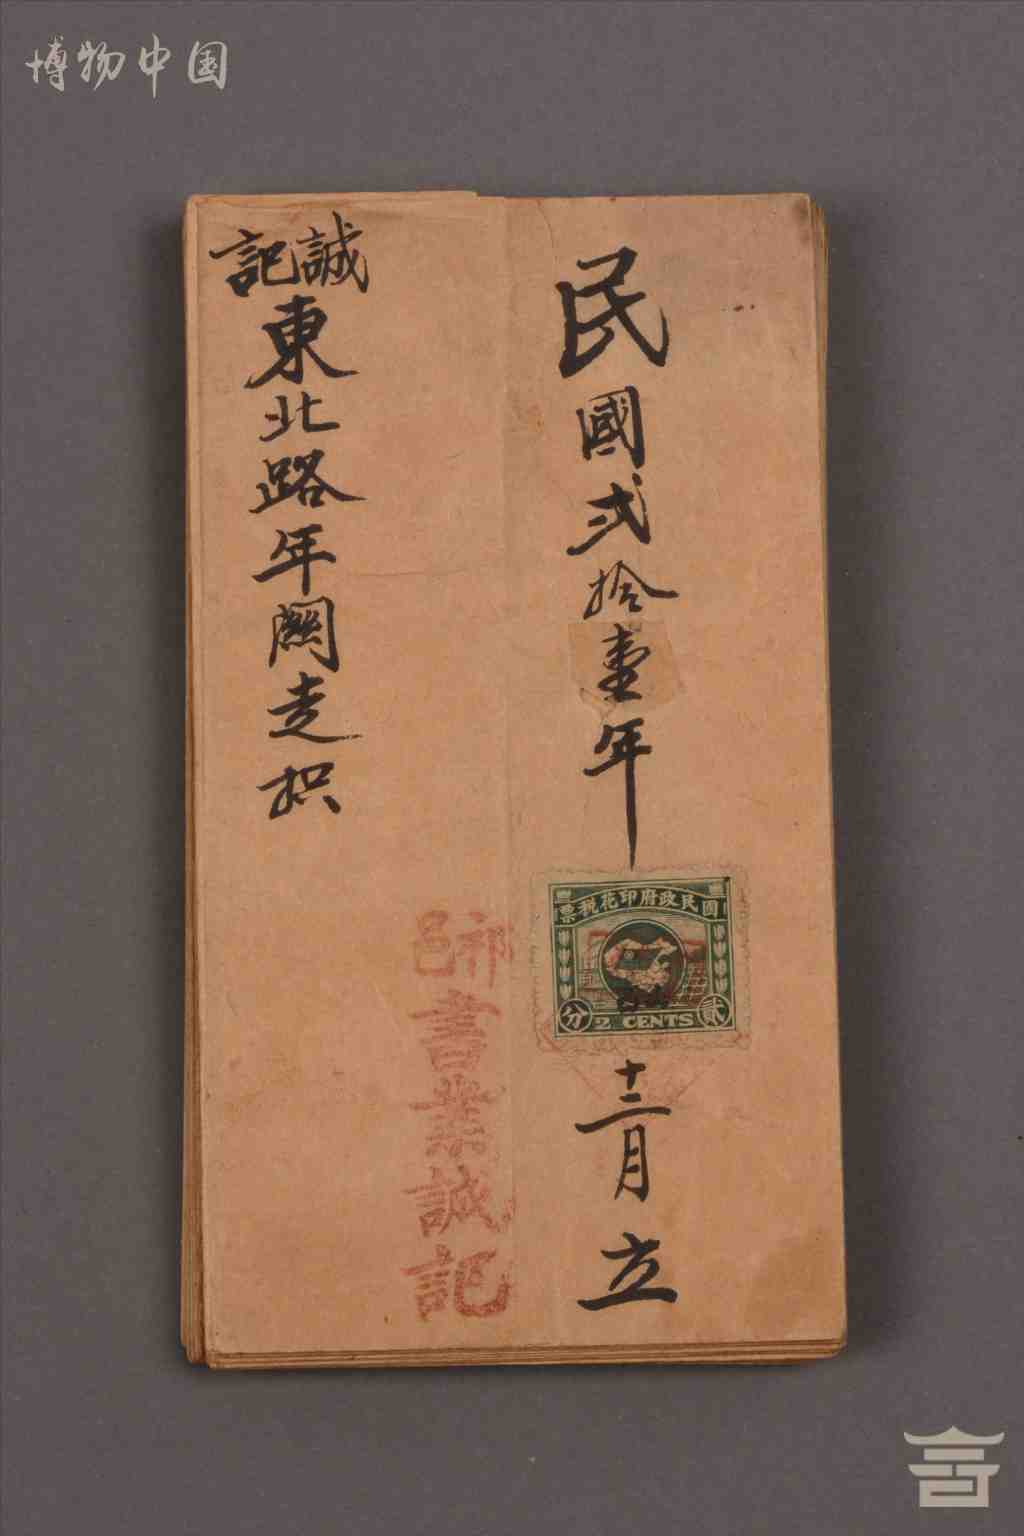 博物中国
民國弍拾壹年
國民政府印花稅票
貳 2 CENTS 分
十二月立
書業誠記
誠記
東北路年關走